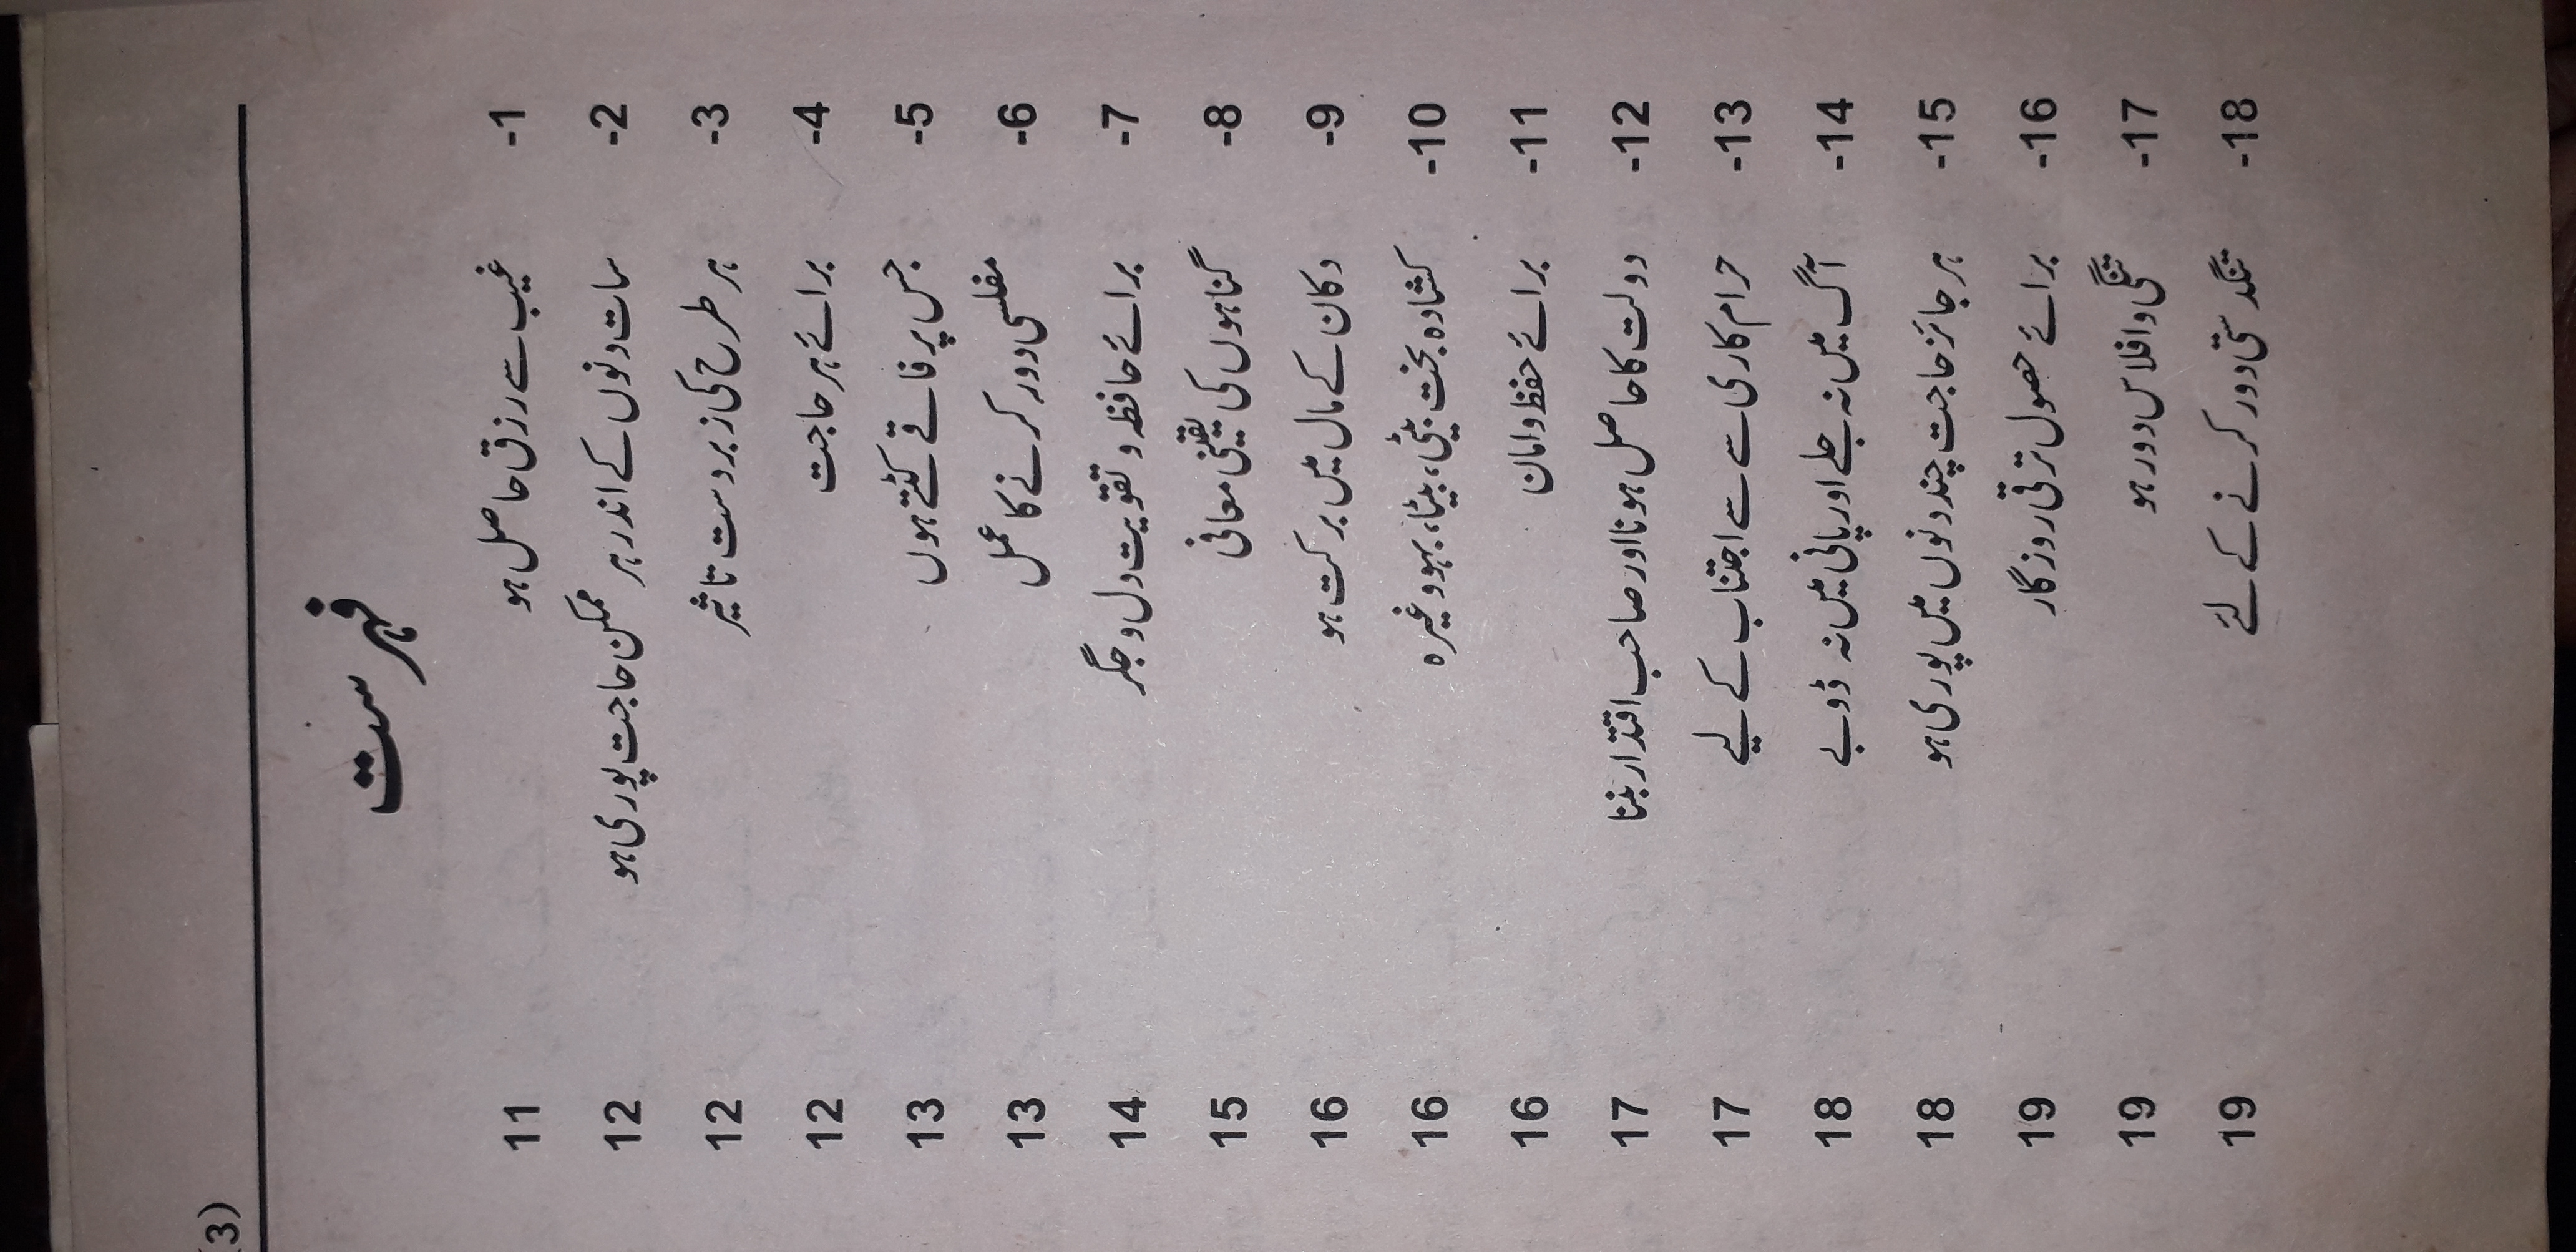 (3)
فہرست
1- غیب سے رزق حاصل ہو 11
2- سات دنوں کے اندر ہر ممکن حاجت پوری ہو 12
3- ہر طرح کی زبردست تاثیر 12
4- برائے ہر حاجت 12
5- جس پر فاقے کٹتے ہوں 13
6- مفلسی دور کرنے کا عمل 13
7- برائے حافظہ و تقویت دل و جگر 14
8- گناہوں کی یقینی معافی 15
9- دکان کے مال میں برکت ہو 16
10- کشادہ بخت بیٹی، بیٹا، بہو وغیرہ 16
11- برائے حفظ و امان 16
12- دولت کا حاصل ہونا اور صاحب اقتدار بننا 17
13- حرام کاری سے سے اجتناب کے لیے 17
14- آگ میں نہ جلے اور پانی میں نہ ڈوبے 18
15- ہر جائز حاجت چند دنوں میں پوری ہو 18
16- برائے حصول ترقی روزگار 19
17- تنگی و افلاس دور ہو 19
18- تنگدستی دور کرنے کے لئے 19